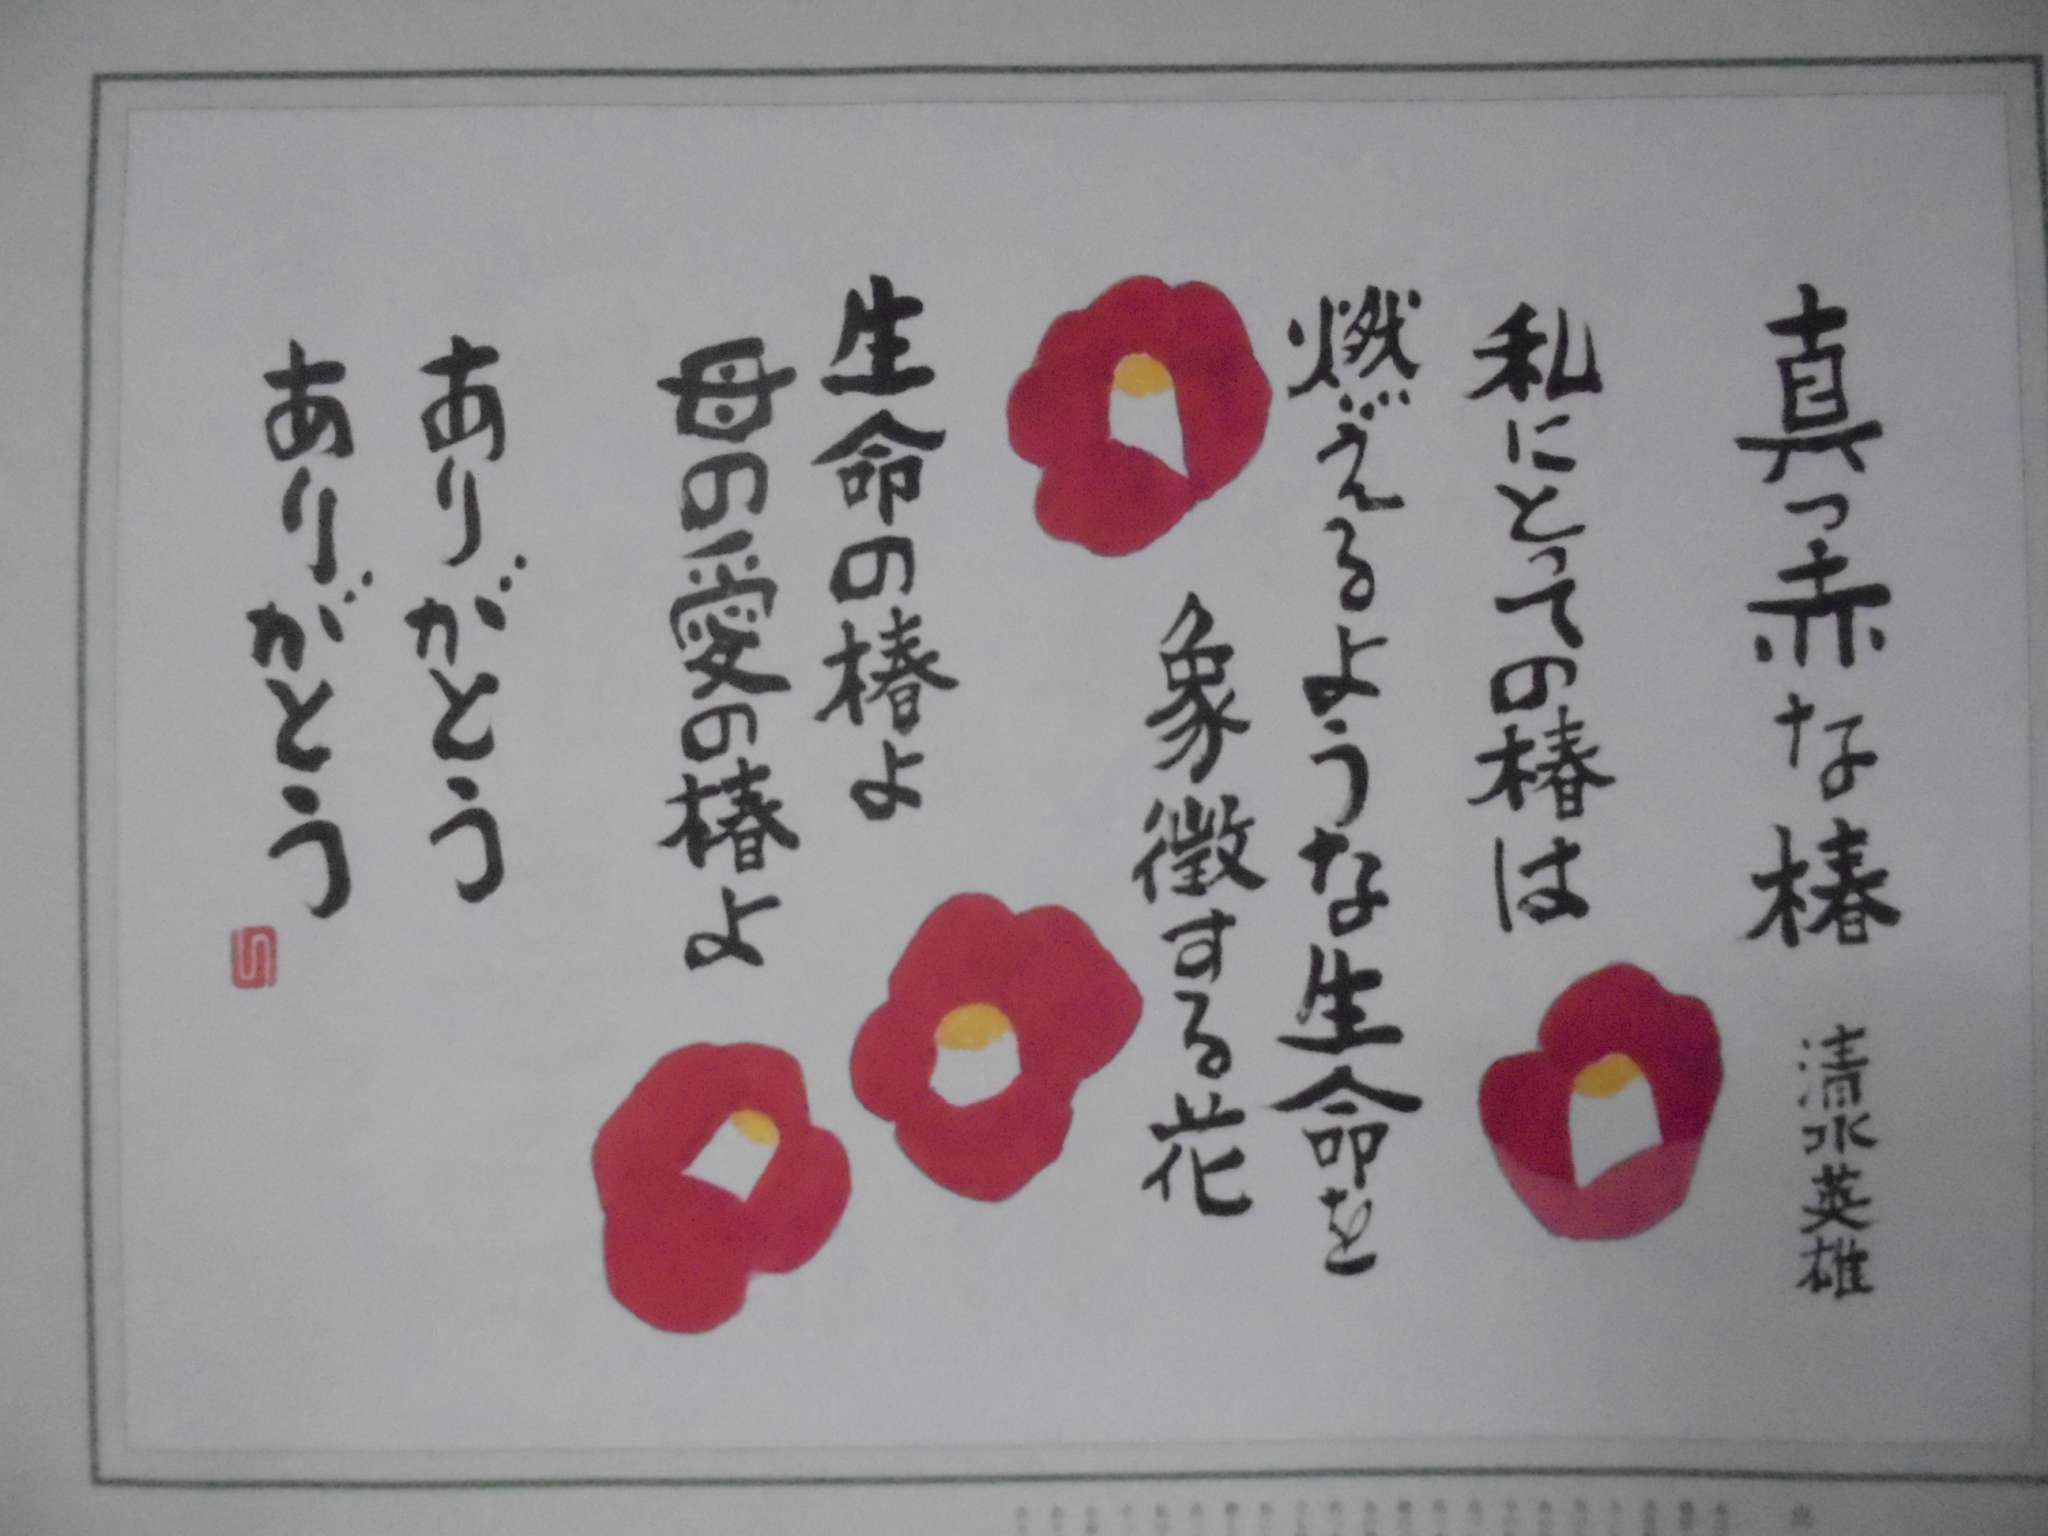 真っ赤な椿
清水英雄
私にとっての椿は
燃えるような生命を
象徴する花
生命の椿よ
母の愛の椿よ
ありがとう
ありがとう